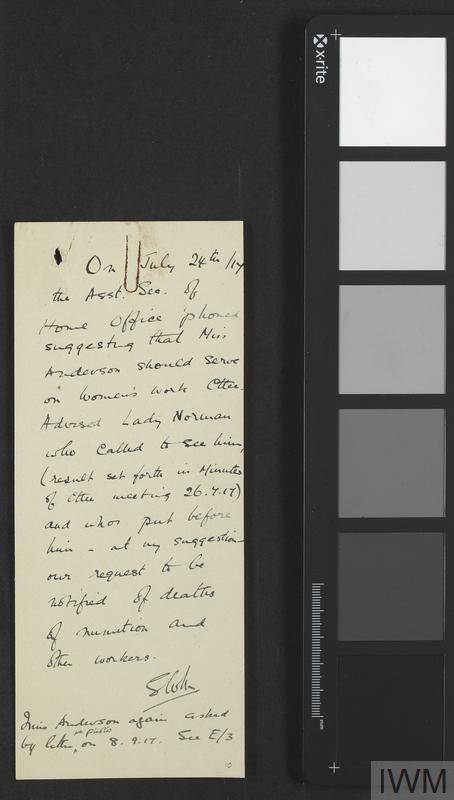 On July 24th/17
the Asst. Sec. of
Home Office 'phoned
suggesting that Miss
Anderson should serve
on Women's Work Cttee.
Advised Lady Norman
who called to see him,
(result set forth in Minutes
of Cttee meeting 26.7.17)
and who put before
him – at my suggestion –
our request to be
notified of deaths
of munition and
other workers.
Miss Anderson again asked
by letter, re photos
on 8.9.17. See E/3
x·rite
mm
IWM